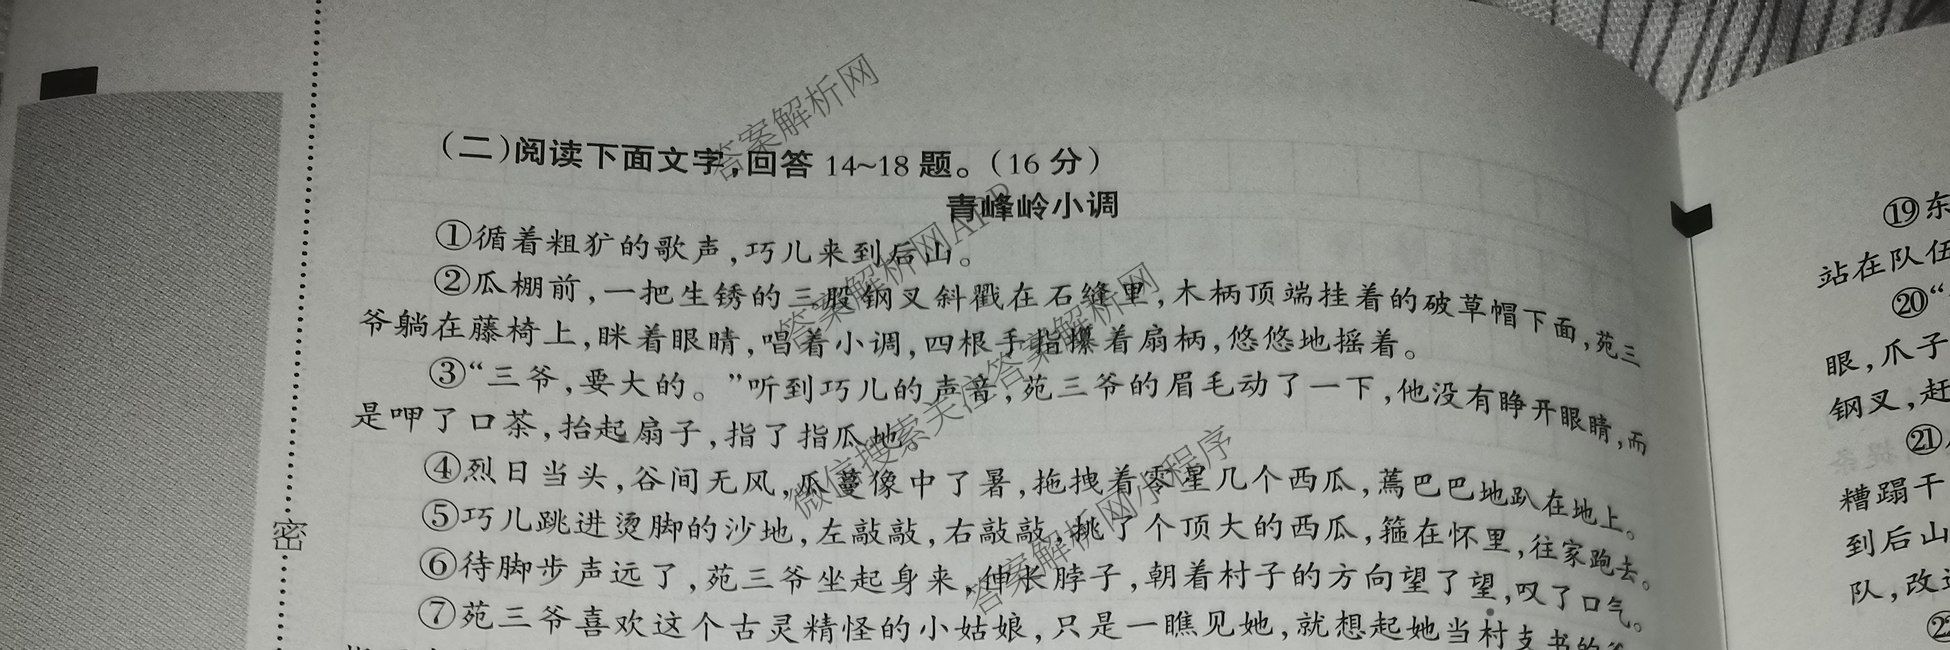 (二)阅读下面文字,回答 14~18 题。(16 分)
青峰岭小调
①循着粗犷的歌声,巧儿来到后山。
②瓜棚前,一把生锈的三股钢叉斜戳在石缝里,木柄顶端挂着的破草帽下面,苑三
爷躺在藤椅上,眯着眼睛,唱着小调,四根手指攥着扇柄,悠悠地摇着。
③“三爷,要大的。”听到巧儿的声音,苑三爷的眉毛动了一下,他没有睁开眼睛,而
是呷了口茶,抬起扇子,指了指瓜地。
④烈日当头,谷间无风,瓜蔓像中了暑,拖拽着零星几个西瓜,蔫巴巴地趴在地上。
⑤巧儿跳进烫脚的沙地,左敲敲,右敲敲,挑了个顶大的西瓜,箍在怀里,往家跑去。
⑥待脚步声远了,苑三爷坐起身来,伸长脖子,朝着村子的方向望了望,叹了口气。
⑦苑三爷喜欢这个古灵精怪的小姑娘,只是一瞧见她,就想起她当村支书的
密
⑲东
站在队伍
⑳“
眼,爪子
钢叉,赶
㉑
糟蹋干
到后山
队,改
㉒
答案解析网
答案解析网APP
微信搜索关注答案解析网
答案解析网小程序